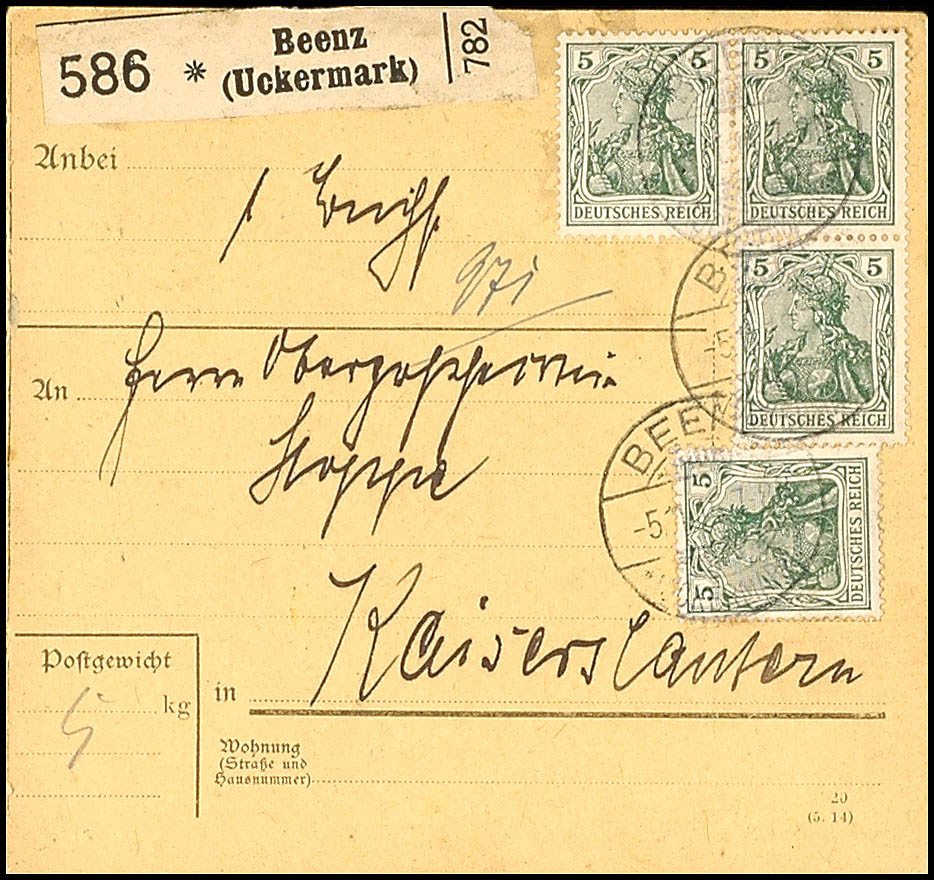 586 * Beenz
(Uckermark)
782
5 5
DEUTSCHES REICH
5 5
DEUTSCHES REICH
5 5
DEUTSCHES REICH
5 5
DEUTSCHES REICH
BEEN
-5.
Anbei
1
An Herrn
Hoppe
in Kaiserslautern
Postgewicht
5 kg
Wohnung
(Straße und
Hausnummer)
20
(5. 14)